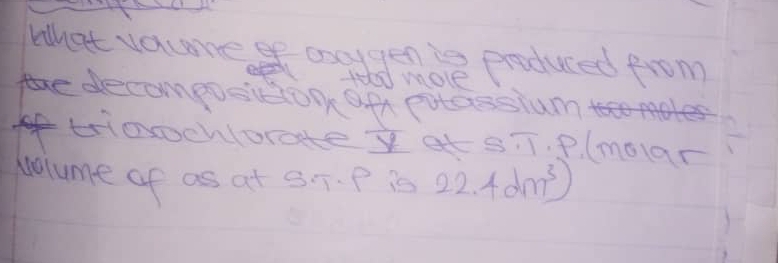 What volume of oxygen is produced from
the decomposition of two mole potassium two moles
of trioxochlorate V at S.T.P. (molar
volume of as at S.T.P is 22.4dm³)